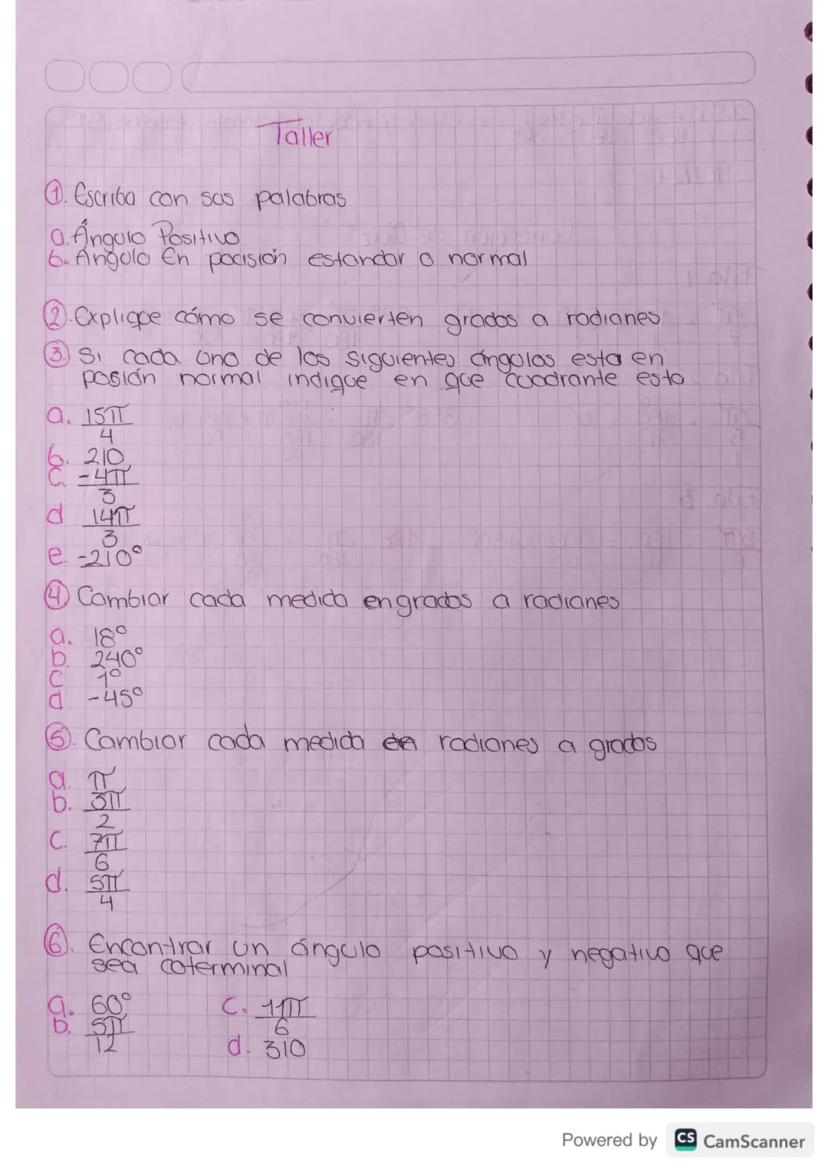 Taller
①. Escriba con sus palabras
a. Ángulo Positivo
b. Ángulo En pocisión estandar o normal
②. Explique cómo se convierten grados a radianes
③ Si cada uno de los siguientes ángulos esta en
posión normal indique en que cuadrante esta
a. 15π/4
b. 210
c. -4π/3
d 14π/3
e -210°
④ Cambiar cada medida en grados a radianes
a. 18°
b. 240°
c 1°
d -45°
⑤. Cambiar cada medida en radianes a grados
a. π
b. 3π/2
c. 7π/6
d. 5π/4
⑥. Encontrar un ángulo positivo y negativo que
sea coterminal
a. 60° c. 11π/6
b. 5π/12
d. 310
Powered by CS CamScanner